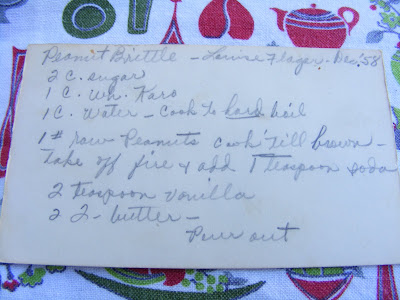 Peanut Brittle - Louise Flager. Dec. '58
2 c. sugar
1 c. Wh. Karo
1 C. Water - Cook to hard boil
1 # raw Peanuts cook 'till brown -
Take off fire & add 1 teaspoon soda
2 teaspoon vanilla
2 2- butter -
Pour out